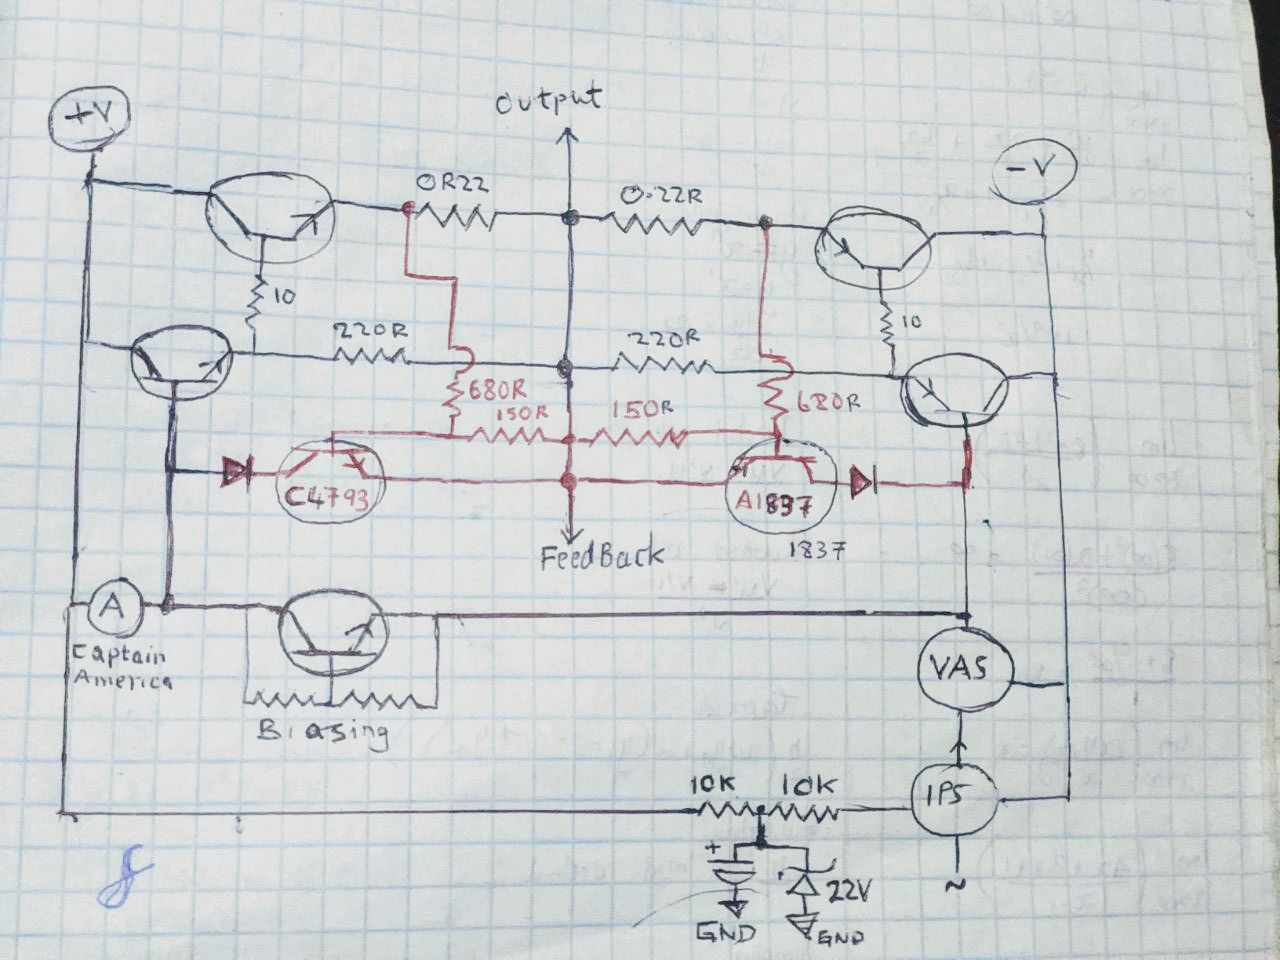 output
+V
-V
0R22
0.22R
10
10
220R
220R
680R
680R
150R
150R
C4793
A1837
1837
FeedBack
A
Captain
America
VAS
Biasing
10K
10K
IPS
+
22V
~
GND
GND